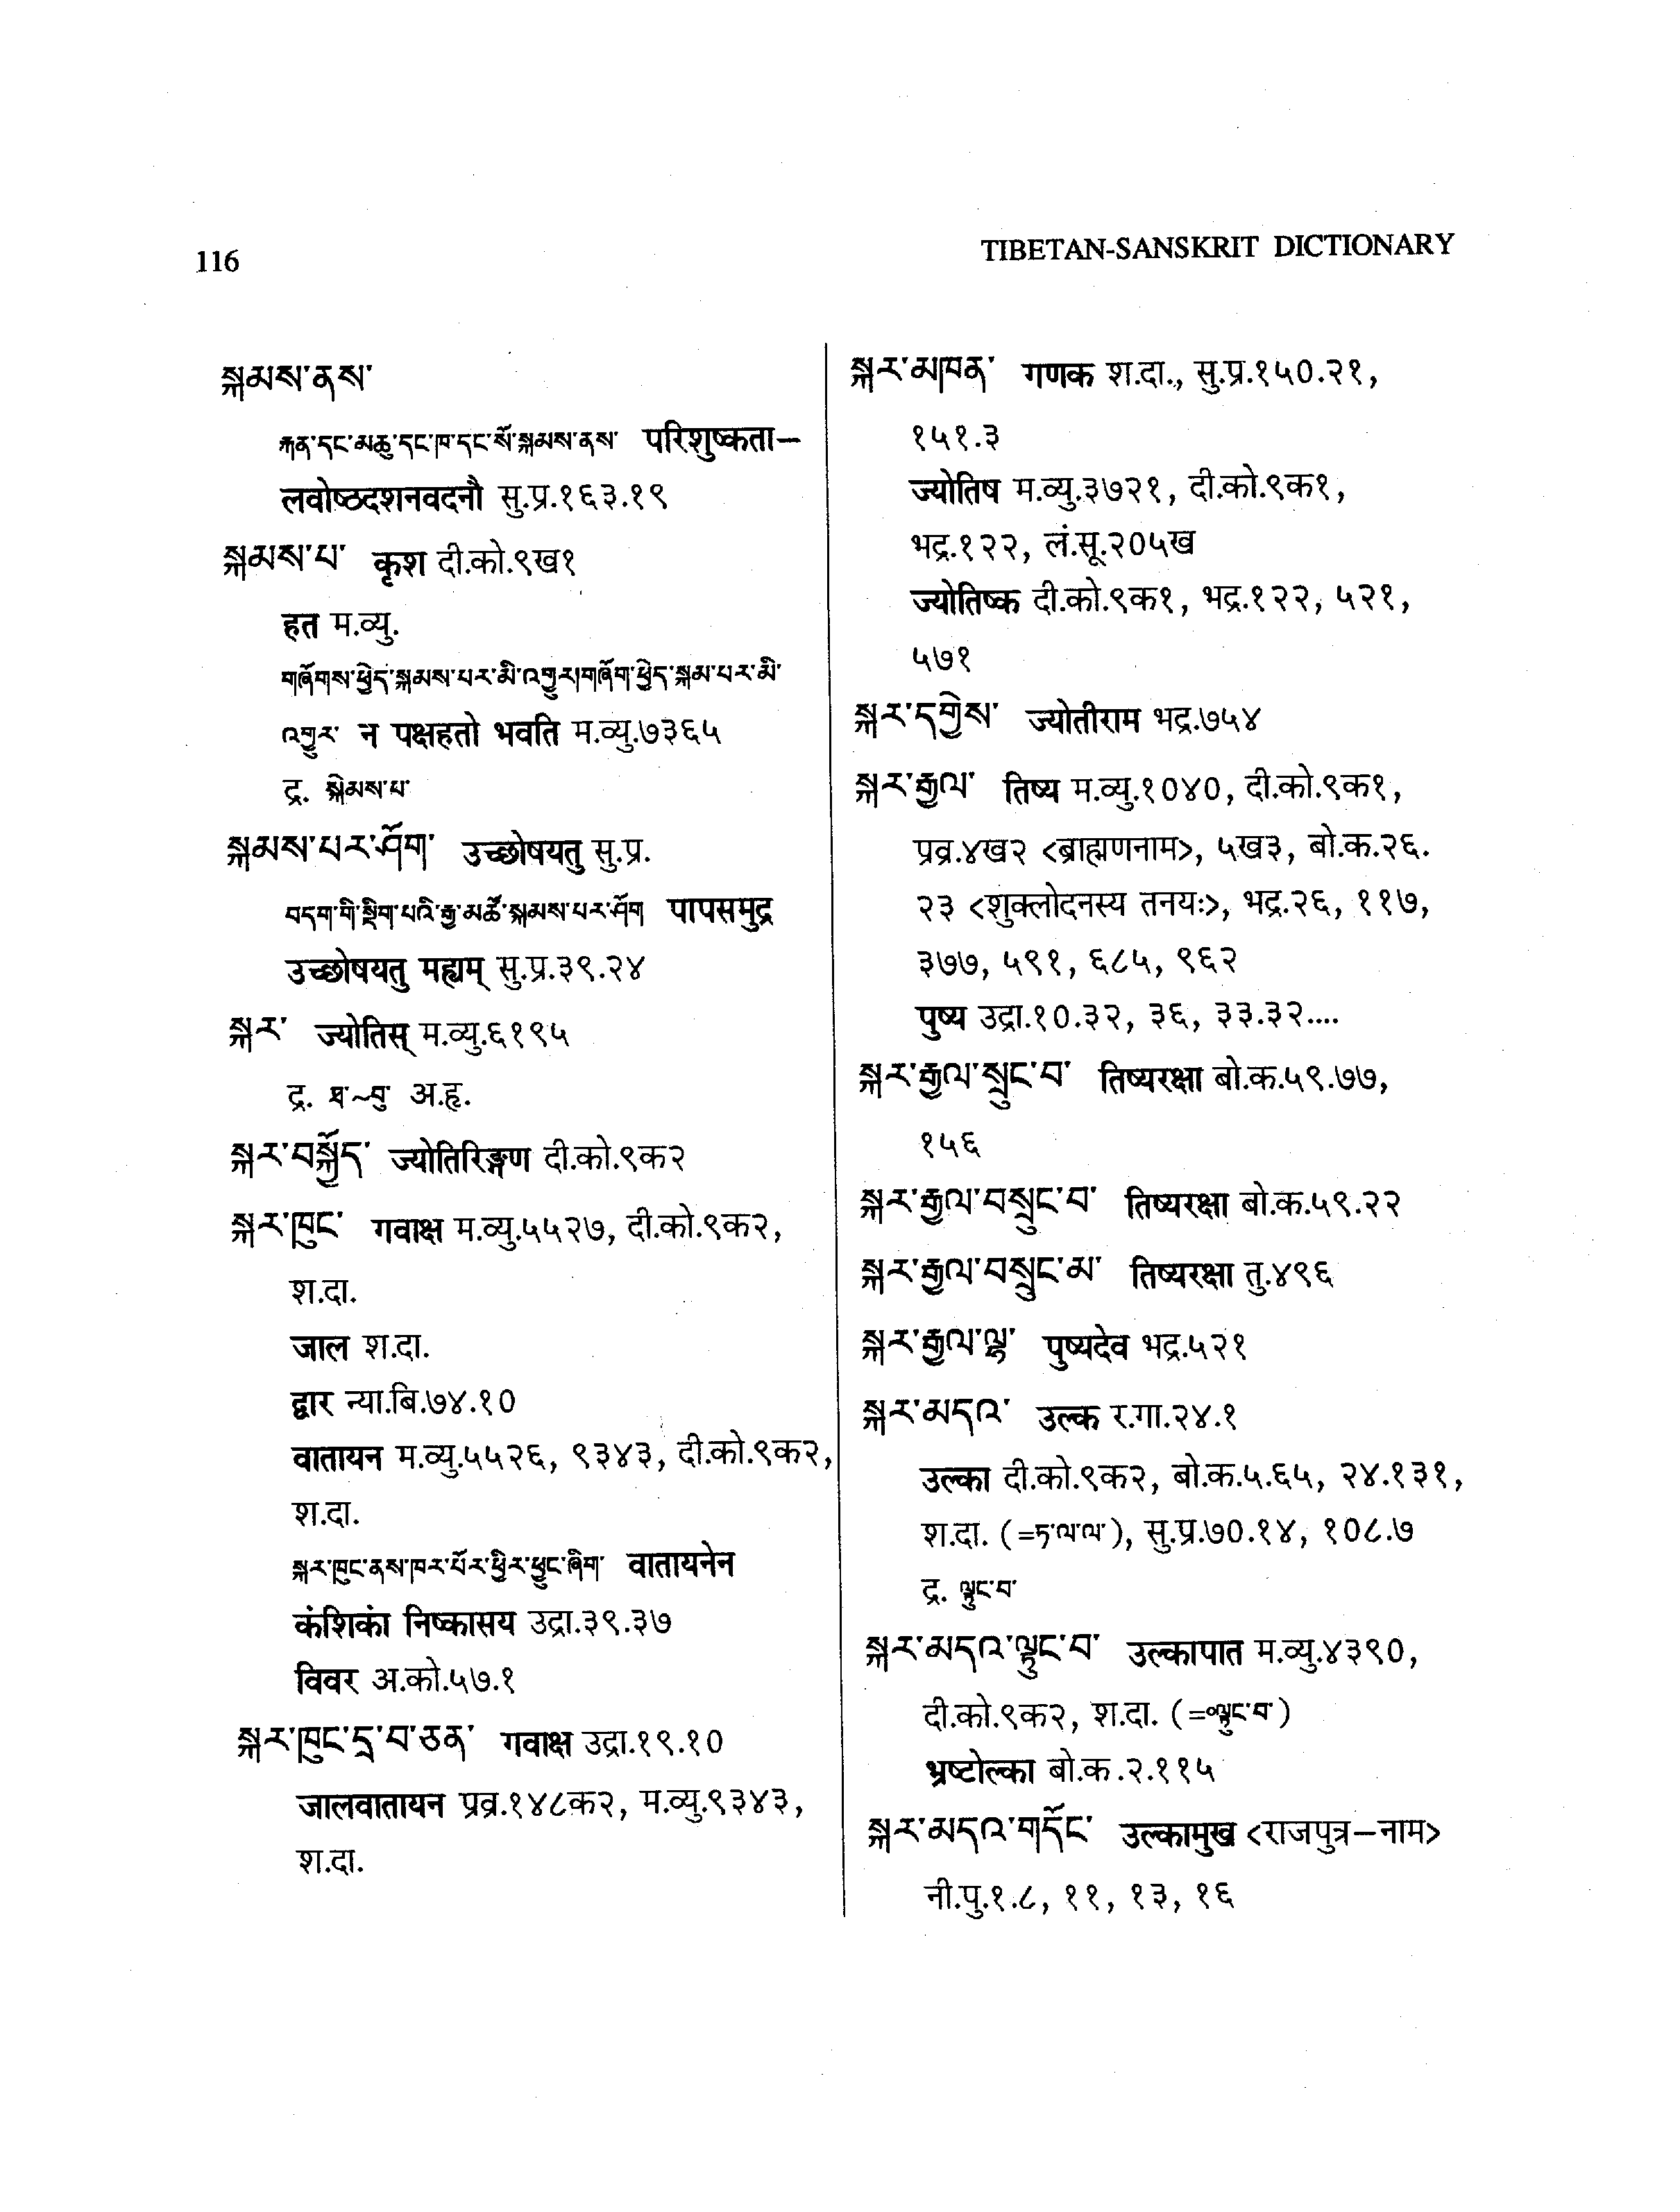 116
TIBETAN-SANSKRIT DICTIONARY
སྐམས་ནས་
རྐན་དང་མཆུ་དང་ཁ་དང་སོ་སྐམས་ནས་ परिशुष्कता–
लवोष्ठदशनवदनौ सु.प्र.१६३.१९
སྐམས་པ་ कृश दी.को.९ख१
हत म.व्यु.
གཞོགས་ཕྱེད་སྐམས་པར་མི་འགྱུར།གཞོག་ཕྱེད་སྐམ་པར་མི་
འགྱུར་ न पक्षहतो भवति म.व्यु.७३६५
द्र. སྐེམས་པ་
སྐམས་པར་ཤོག་ उच्छोषयतु सु.प्र.
བདག་གི་སྡིག་པའི་རྒྱ་མཚོ་སྐམས་པར་ཤོག पापसमुद्र
उच्छोषयतु मह्यम् सु.प्र.३९.२४
སྐར་ ज्योतिस् म.व्यु.६१९५
द्र. ཐ་~བུ་ अ.हृ.
སྐར་བསྐྱོད་ ज्योतिरिङ्गण दी.को.९क२
སྐར་ཁུང་ गवाक्ष म.व्यु.५५२७, दी.को.९क२,
श.दा.
जाल श.दा.
द्वार न्या.बि.७४.१०
वातायन म.व्यु.५५२६, ९३४३, दी.को.९क२,
श.दा.
སྐར་ཁུང་ནས་ཁར་པོར་ཕྱིར་ཕྱུང་ཞིག་ वातायनेन
कंशिकां निष्कासय उद्रा.३९.३७
विवर अ.को.५७.१
སྐར་ཁུང་དྲ་བ་ཅན་ गवाक्ष उद्रा.१९.१०
जालवातायन प्रव्र.१४८क२, म.व्यु.९३४३,
श.दा.
སྐར་མཁན་ गणक श.दा., सु.प्र.१५०.२१,
१५१.३
ज्योतिष म.व्यु.३७२१, दी.को.९क१,
भद्र.१२२, लं.सू.२०५ख
ज्योतिष्क दी.को.९क१, भद्र.१२२, ५२१,
५७१
སྐར་དགྱེས་ ज्योतीराम भद्र.७५४
སྐར་རྒྱལ་ तिष्य म.व्यु.१०४०, दी.को.९क१,
प्रव्र.४ख२ <ब्राह्मणनाम>, ५ख३, बो.क.२६.
२३ <शुक्लोदनस्य तनयः>, भद्र.२६, ११७,
३७७, ५९१, ६८५, ९६२
पुष्य उद्रा.१०.३२, ३६, ३३.३२....
སྐར་རྒྱལ་སྲུང་བ་ तिष्यरक्षा बो.क.५९.७७,
१५६
སྐར་རྒྱལ་བསྲུང་བ་ तिष्यरक्षा बो.क.५९.२२
སྐར་རྒྱལ་བསྲུང་མ་ तिष्यरक्षा तु.४९६
སྐར་རྒྱལ་ལྷ་ पुष्यदेव भद्र.५२१
སྐར་མདའ་ उल्क र.गा.२४.१
उल्का दी.को.९क२, बो.क.५.६५, २४.१३१,
श.दा. (=ཏ་ལ་ལ་), सु.प्र.७०.१४, १०८.७
द्र. ལྟུང་བ་
སྐར་མདའ་ལྟུང་བ་ उल्कापात म.व्यु.४३९०,
दी.को.९क२, श.दा. (=०ལྟུང་བ་)
भ्रष्टोल्का बो.क.२.११५
སྐར་མདའ་གདོང་ उल्कामुख <राजपुत्र–नाम>
नी.पु.१.८, ११, १३, १६